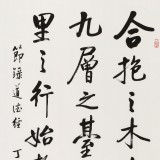 合抱之木
九層之臺
里之行始
節錄道德經 丁